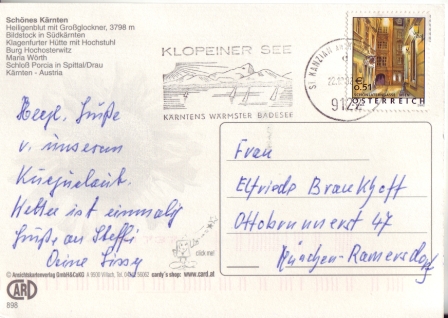 Schönes Kärnten
Heiligenblut mit Großglockner, 3798 m
Bildstock in Südkärnten
Klagenfurter Hütte mit Hochstuhl
Burg Hochosterwitz
Maria Wörth
Schloß Porcia in Spittal/Drau
Kärnten - Austria
KLOPEINER SEE
KÄRNTENS WÄRMSTER BADESEE
ST. KANZIAN
9122
€ 0.51
ÖSTERREICH
Herzl. Grüße
v. unserem
Kurzurlaub.
Wetter ist einmalig
Grüße an Steffi
Deine Sissy
Frau
Elfriede Brauckhoff
Ottobrunnerst 47
München-Ramersdorf
click me!
© Ansichtskartenverlag GmbH&CoKG A 9500 Villach, candy's shop: www.card.at
CARD
898